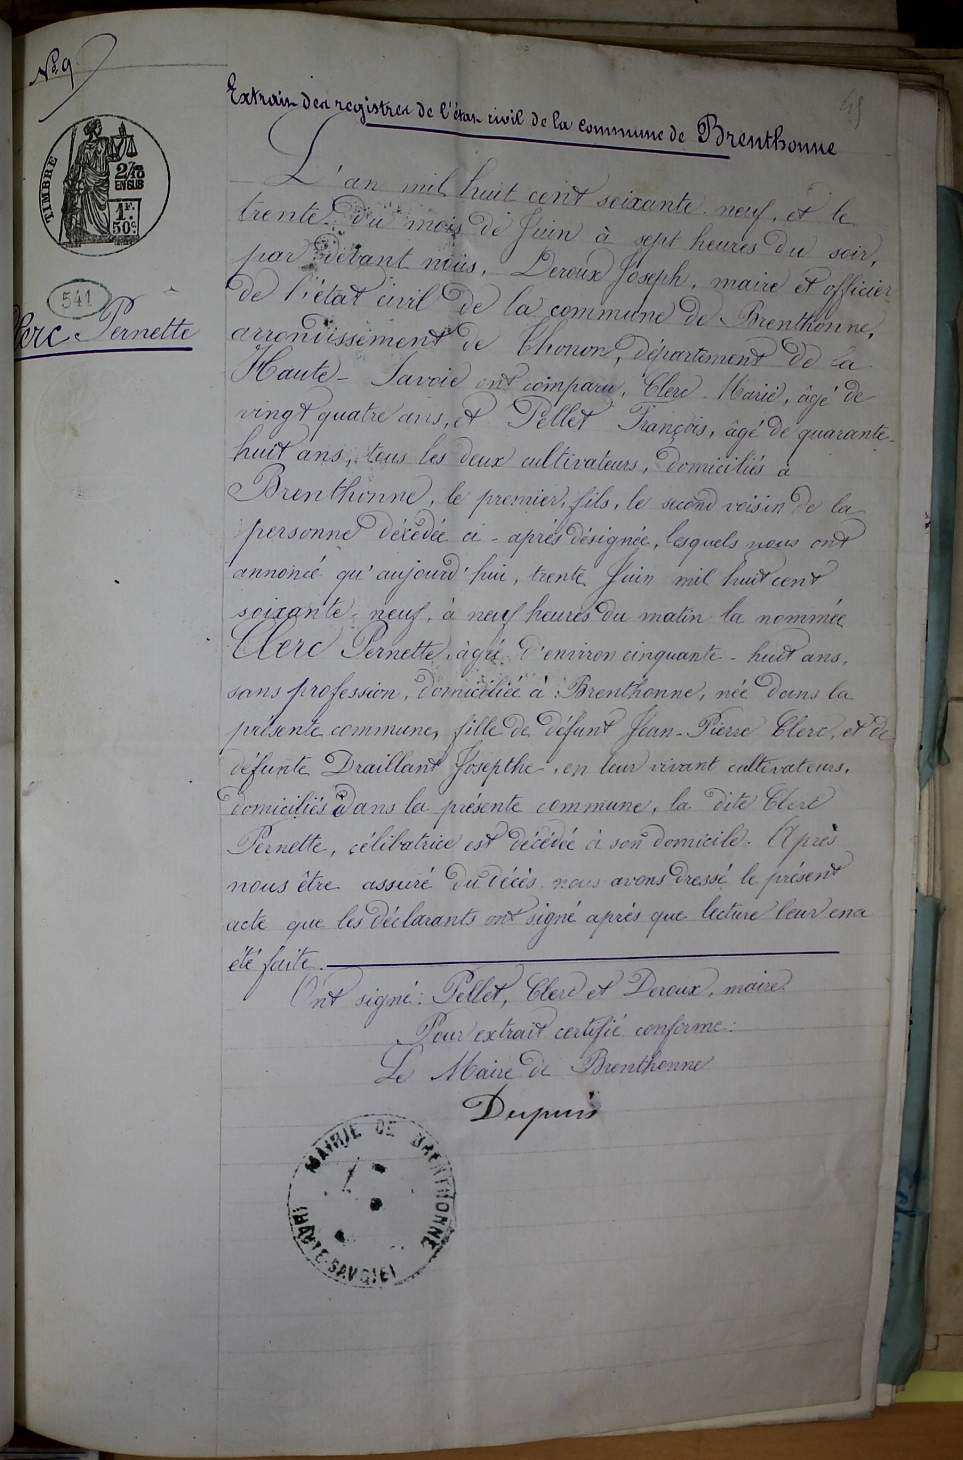 No 9
Extrait des registres de l'état civil de la commune de Brenthonne
45
TIMBRE
2/10
EN SUS
1F.
50c
541
Clerc Pernette
L'an mil huit cent soixante-neuf, et le
trente du mois de Juin à sept heures du soir,
par devant nous, Deroux Joseph, maire et officier
de l'état civil de la commune de Brenthonne,
arrondissement de Thonon, département de la
Haute-Savoie ont comparu, Clerc Marie, âgé de
vingt quatre ans, et Pellet François, âgé de quarante-
huit ans, tous les deux cultivateurs, domiciliés à
Brenthonne, le premier, fils, le second voisin de la
personne décédée ci-après désignée, lesquels nous ont
annoncé qu'aujourd'hui, trente Juin mil huit cent
soixante-neuf, à neuf heures du matin la nommée
Clerc Pernette, âgée d'environ cinquante-huit ans,
sans profession, domiciliée à Brenthonne, née dans la
présente commune, fille de défunt Jean-Pierre Clerc, et de
défunte Draillant Josepthe, en leur vivant cultivateurs,
domiciliés dans la présente commune, la dite Clerc
Pernette, célibatrice est décédée à son domicile. Après
nous être assuré du décès nous avons dressé le présent
acte que les déclarants ont signé après que lecture leur en a
été faite.
Ont signé: Pellet, Clerc et Deroux, maire
Pour extrait certifié conforme:
Le Maire de Brenthonne
Dupuis
MAIRIE DE BRENTHONNE
(HAUTE-SAVOIE)